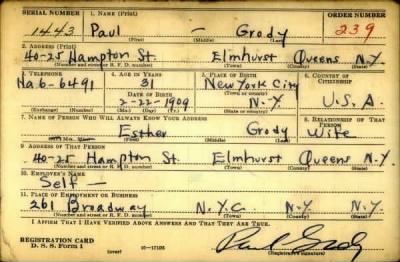 SERIAL NUMBER 1. NAME (Print) ORDER NUMBER
1443 Paul — Grody 239
(First) (Middle) (Last)
2. ADDRESS (Print)
40-25 Hampton St. Elmhurst Queens N.Y.
(Number and street or R. F. D. number) (Town) (County) (State)
3. TELEPHONE 4. AGE IN YEARS 5. PLACE OF BIRTH 6. COUNTRY OF CITIZENSHIP
Ha 6-6491 31 New York City
DATE OF BIRTH (Town or county)
2-22-1909 N.Y. U.S.A.
(Exchange) (Number) (Mo.) (Day) (Yr.) (State or country)
7. NAME OF PERSON WHO WILL ALWAYS KNOW YOUR ADDRESS 8. RELATIONSHIP OF THAT PERSON
Esther Grody Wife
(First) (Middle) (Last)
9. ADDRESS OF THAT PERSON
40-25 Hampton St. Elmhurst Queens N.Y.
(Number and street or R. F. D. number) (Town) (County) (State)
10. EMPLOYER'S NAME
Self —
11. PLACE OF EMPLOYMENT OR BUSINESS
261 Broadway N.Y.C. N.Y. N.Y.
(Number and street or R. F. D. number) (Town) (County) (State)
I AFFIRM THAT I HAVE VERIFIED ABOVE ANSWERS AND THAT THEY ARE TRUE.
REGISTRATION CARD
D. S. S. Form 1 (over) 16—17105 Paul Grody
(Registrant's signature)